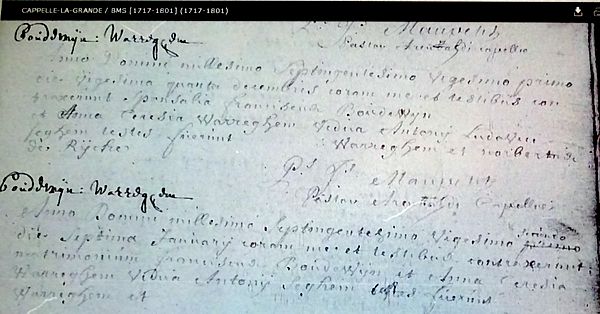 CAPPELLE-LA-GRANDE / BMS [1717-1801] (1717-1801)
P. J. Mauvens
Pastor Capelle
Bouddewijn: Warregem
Anno Domini millesimo Septingentesimo Vigesimo primo
die Vigesima quarta decembris coram me et testibus con
traxerunt Sponsalia franciscus Boudewyn
et Anna Teresia Warreghem Vidua Antony
Seghem testes fuerint Warreghem et norbertus
de Rycke
P. J. Mauvens
Pastor Capelle
Bouddewijn: Warregem
Anno Domini millesimo Septingentesimo Vigesimo secundo
die Septima January coram me et testibus contraxerunt
matrimonium franciscus Boudewyn et Anna Teresia
Warreghem Vidua Antony Seghem testes fuerint
Warreghem et